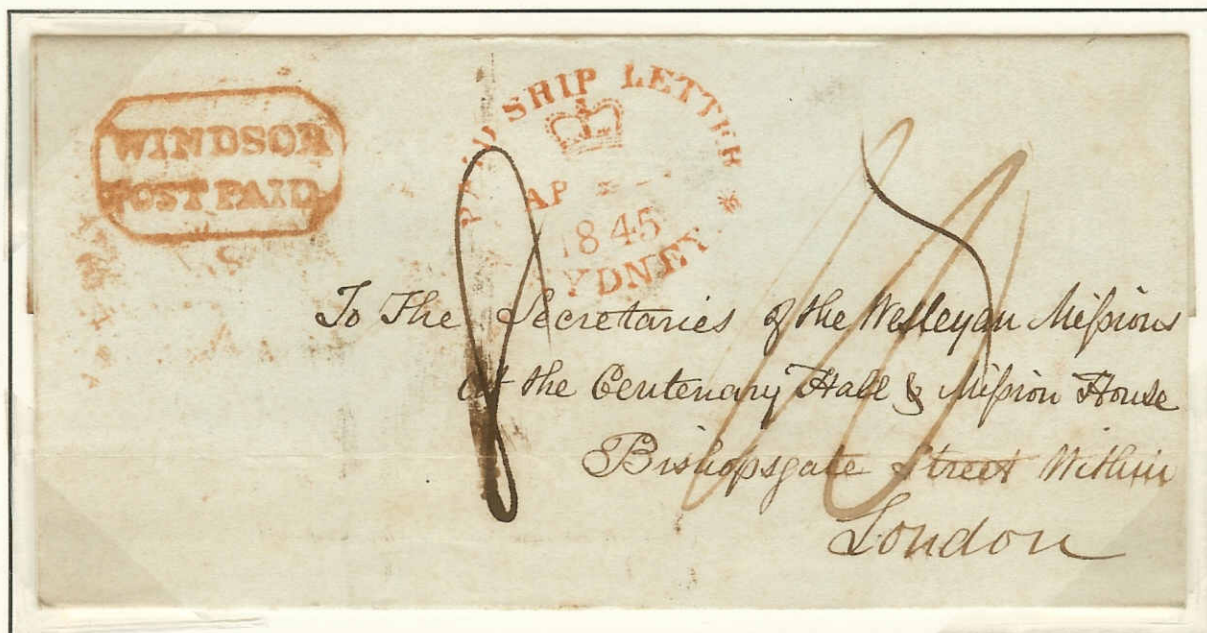 WINDSOR
POST PAID
PAID SHIP LETTER
AP
1845
SYDNEY
8
To The Secretaries of the Wesleyan Missions
At the Centenary Hall & Mission House
Bishopsgate Street Within
London